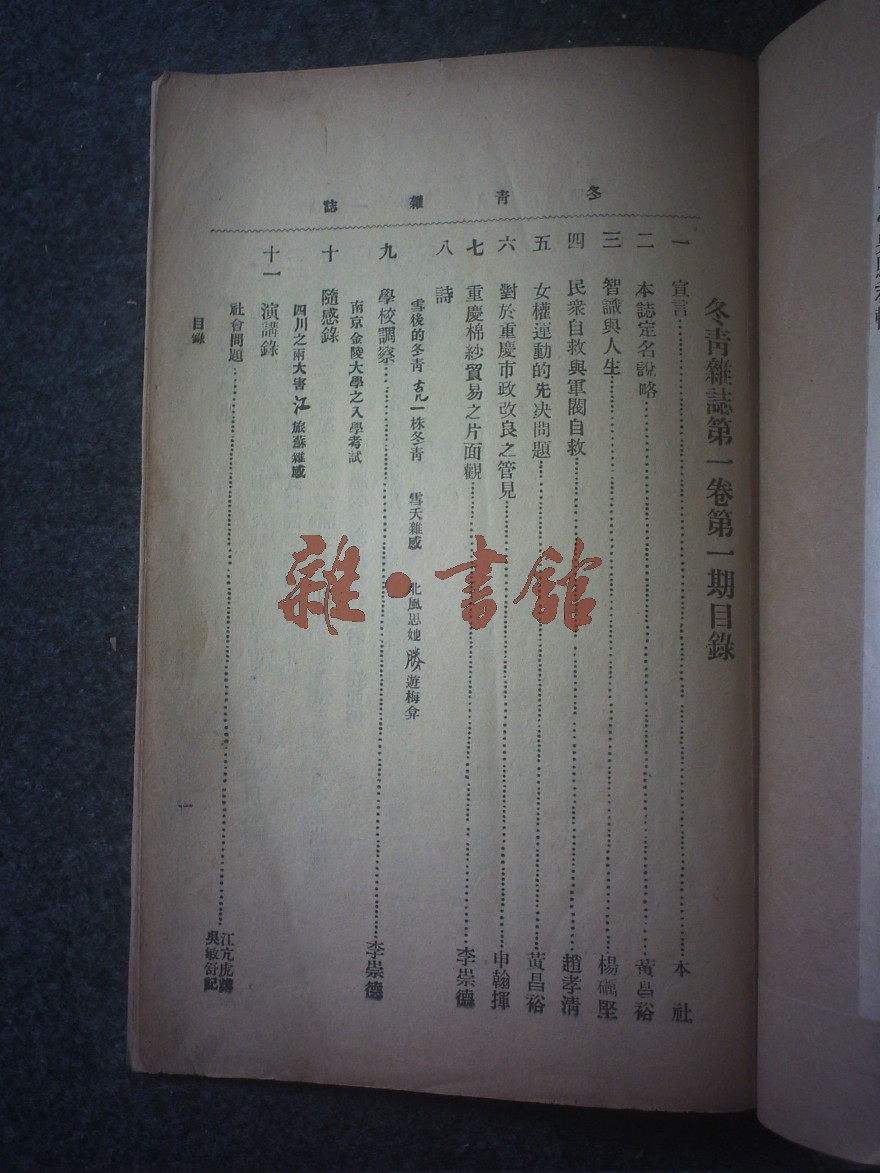 冬青雜誌
冬青雜誌第一卷第一期目錄
一 宣言 本社
二 本誌定名說略 黃昌裕
三 智識與人生 楊礪堅
四 民衆自救與軍閥自救 趙孝清
五 女權運動的先决問題 黃昌裕
六 對於重慶市政改良之管見 申翰揮
七 重慶棉紗貿易之片面觀 李崇德
八 詩
雪後的冬青 一株冬青 雪天雜感 北風思她 勝遊梅弅
九 學校調察 李崇德
南京金陵大學之入學考試
十 隨感錄
四川之兩大害 江 旅蘇雜感
十一 演講錄
社會問題 江亢虎講
吳敏舒記
目錄
一
雜·書館